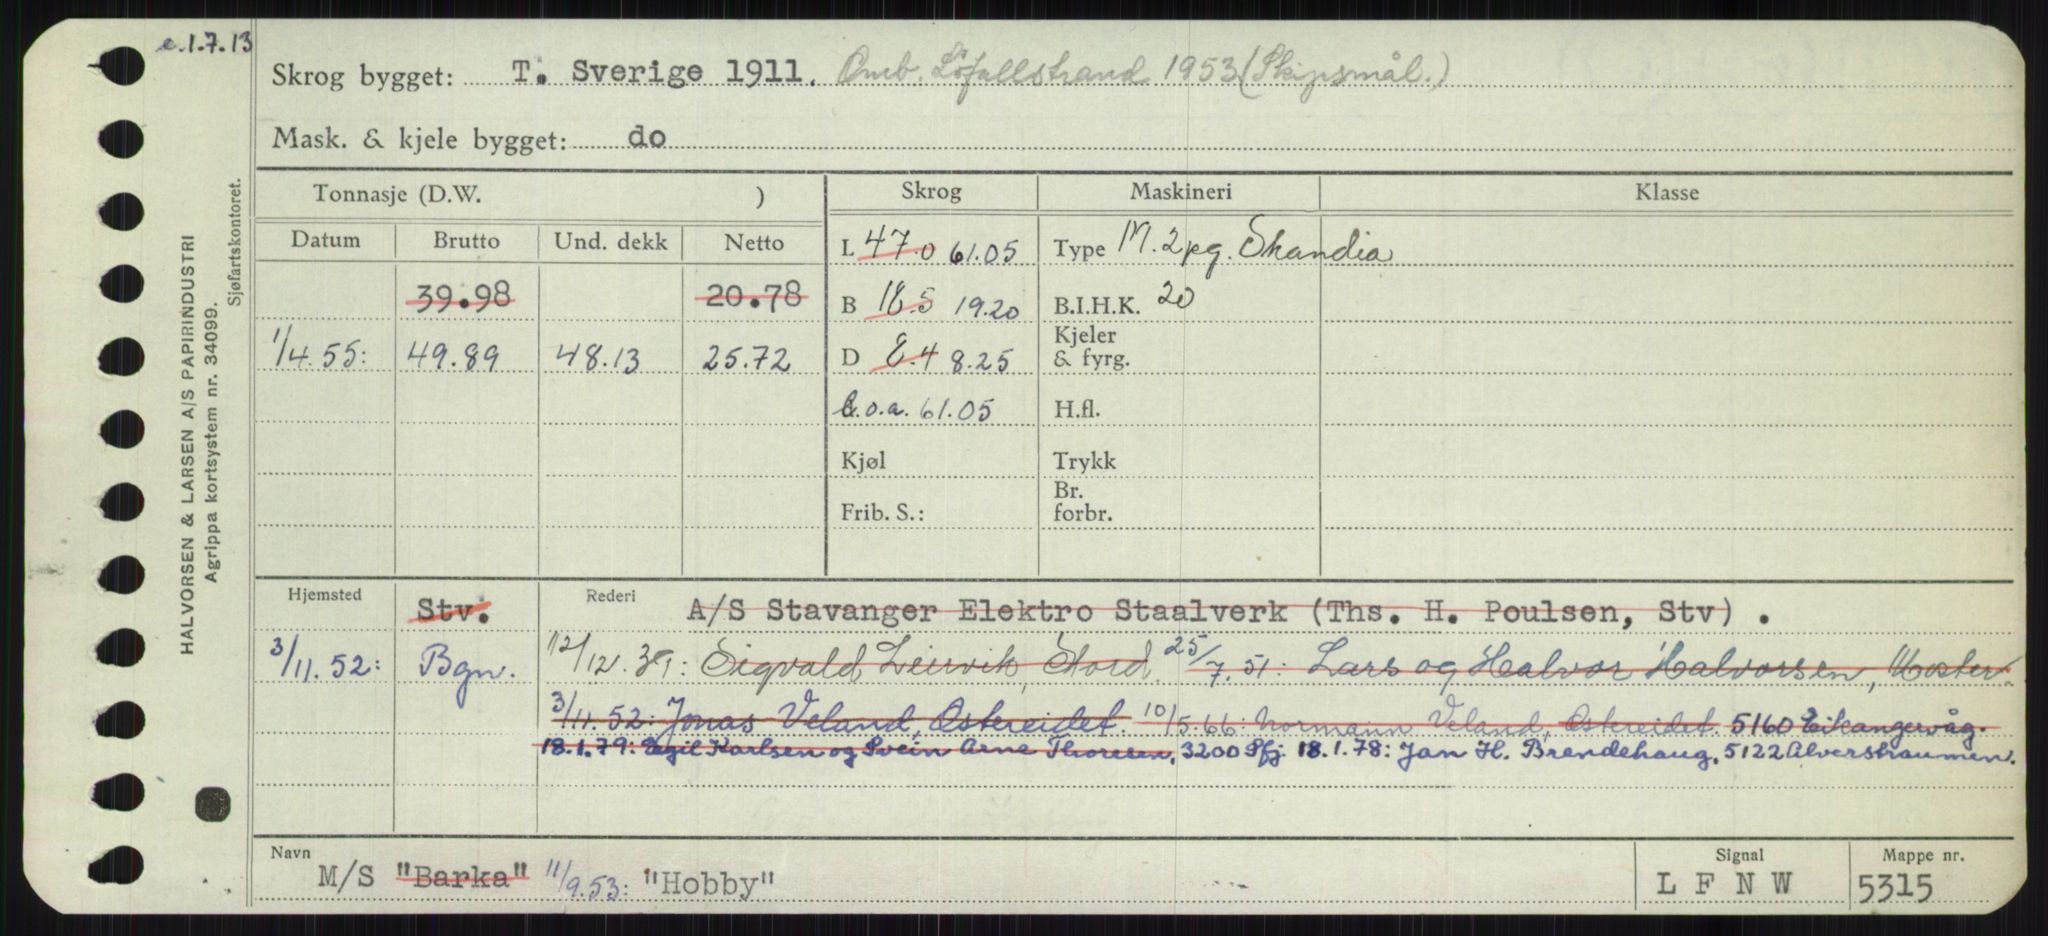 e.1.7.13
Skrog bygget: T. Sverige 1911. Omb. Løfallstrand 1953 (Skipsmål.)
Mask. & kjele bygget: do
HALVORSEN & LARSEN A/S PAPIRINDUSTRI
Agrippa kortsystem nr. 34099.
Sjøfartskontoret.
Tonnasje (D.W. ) Skrog Maskineri Klasse
Datum Brutto Und. dekk Netto
L 47.0 61.05 Type M. 2 pg. Skandia
39.98 20.78 B 18.5 19.20 B.I.H.K. 20
1/4.55: 49.89 48.13 25.72 D 8.4 8.25 Kjeler & fyrg.
l.o.a. 61.05 H.fl.
Kjøl Trykk
Frib. S.: Br. forbr.
Hjemsted Stv. Rederi A/S Stavanger Elektro Staalverk (Ths. H. Poulsen, Stv) .
3/11.52: Bgn. 12/12.39: Sigvald Leirvik, Stord. 25/7.51: Lars og Halvor Halvorsen, Moster.
3/11.52: Jonas Veland, Ostereidet. 10/5.66: Normann Veland, Ostereidet. 5160 Eikangervåg.
18.1.79: Egil Karlsen og Svein Arne Thoresen, 3200 Sfj. 18.1.78: Jan H. Brendehaug, 5122 Alverstraumen.
Navn M/S "Barka" 11/9.53: "Hobby" Signal LFNW Mappe nr. 5315